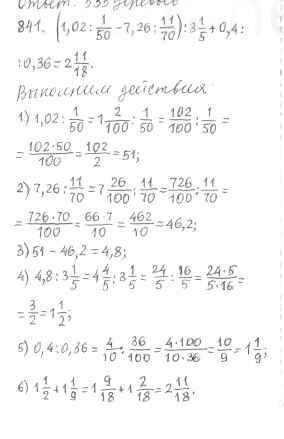 Ответ:
841. (1,02 : 1/50 - 7,26 : 11/70) : 3 1/5 + 0,4 :
: 0,36 = 2 11/18.
Выполним действия
1) 1,02 : 1/50 = 1 2/100 : 1/50 = 102/100 : 1/50 =
= 102·50/100 = 102/2 = 51;
2) 7,26 : 11/70 = 7 26/100 : 11/70 = 726/100 : 11/70 =
= 726·70/100 = 66·7/10 = 462/10 = 46,2;
3) 51 - 46,2 = 4,8;
4) 4,8 : 3 1/5 = 4 4/5 : 3 1/5 = 24/5 : 16/5 = 24·5/5·16 =
= 3/2 = 1 1/2;
5) 0,4 : 0,36 = 4/10 : 36/100 = 4·100/10·36 = 10/9 = 1 1/9;
6) 1 1/2 + 1 1/9 = 1 9/18 + 1 2/18 = 2 11/18.